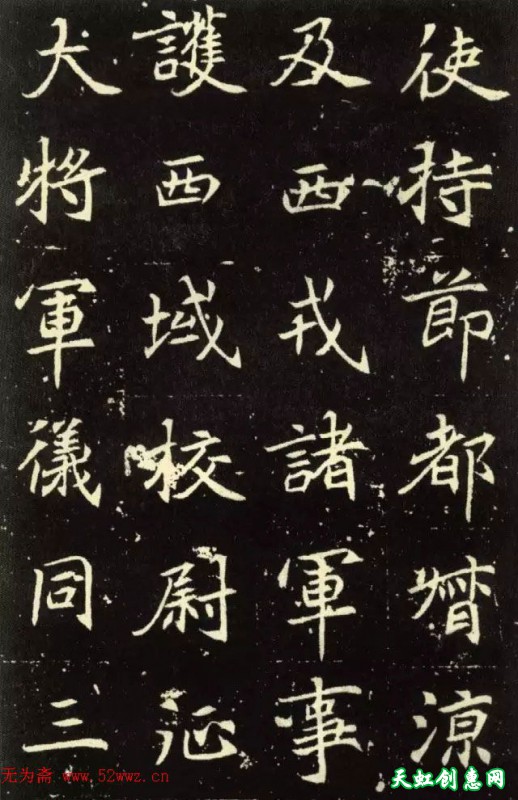 使持節都督涼
及西戎諸軍事
護西域校尉征
大將軍儀同三
无为斋 www.52wwz.cn
天虹创惠网